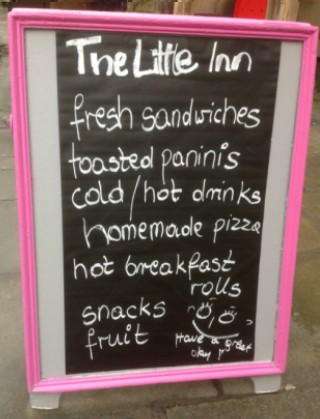 The Little Inn
fresh sandwiches
toasted paninis
cold/hot drinks
homemade pizza
hot breakfast
rolls
snacks
fruit
Have a great
day